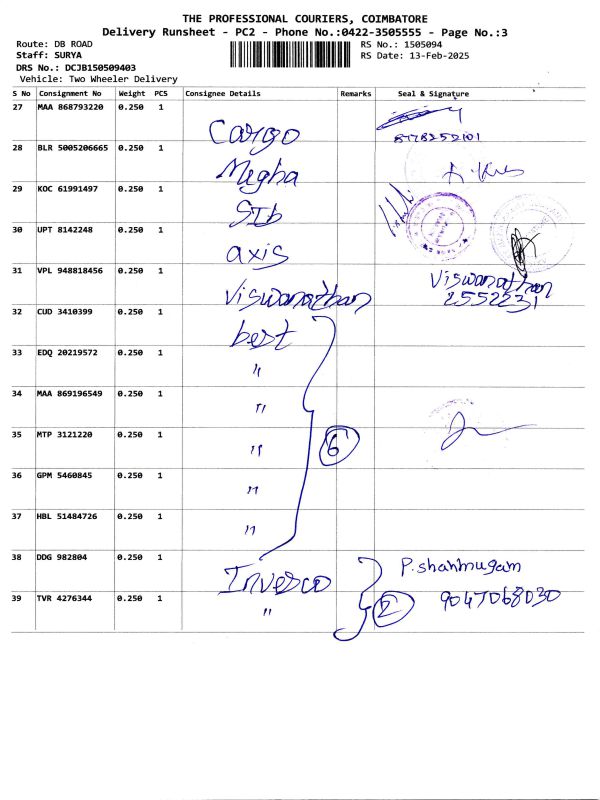 THE PROFESSIONAL COURIERS, COIMBATORE
Delivery Runsheet - PC2 - Phone No.:0422-3505555 - Page No.:3
Route: DB ROAD RS No.: 1505094
Staff: SURYA RS Date: 13-Feb-2025
DRS No.: DCJB150509403
Vehicle: Two Wheeler Delivery
S No Consignment No Weight PCS Consignee Details Remarks Seal & Signature
27 MAA 868793220 0.250 1 Cargo
28 BLR 5005206665 0.250 1 Megha
29 KOC 61991497 0.250 1 SIb
30 UPT 8142248 0.250 1 axis
31 VPL 948818456 0.250 1 Viswanathan Viswanathan
2552231
32 CUD 3410399 0.250 1 best
33 EDQ 20219572 0.250 1 "
34 MAA 869196549 0.250 1 "
35 MTP 3121220 0.250 1 " 6
36 GPM 5460845 0.250 1 "
37 HBL 51484726 0.250 1 "
38 DDG 982804 0.250 1 Invesco P.shanmugam
39 TVR 4276344 0.250 1 " 2 9047068030